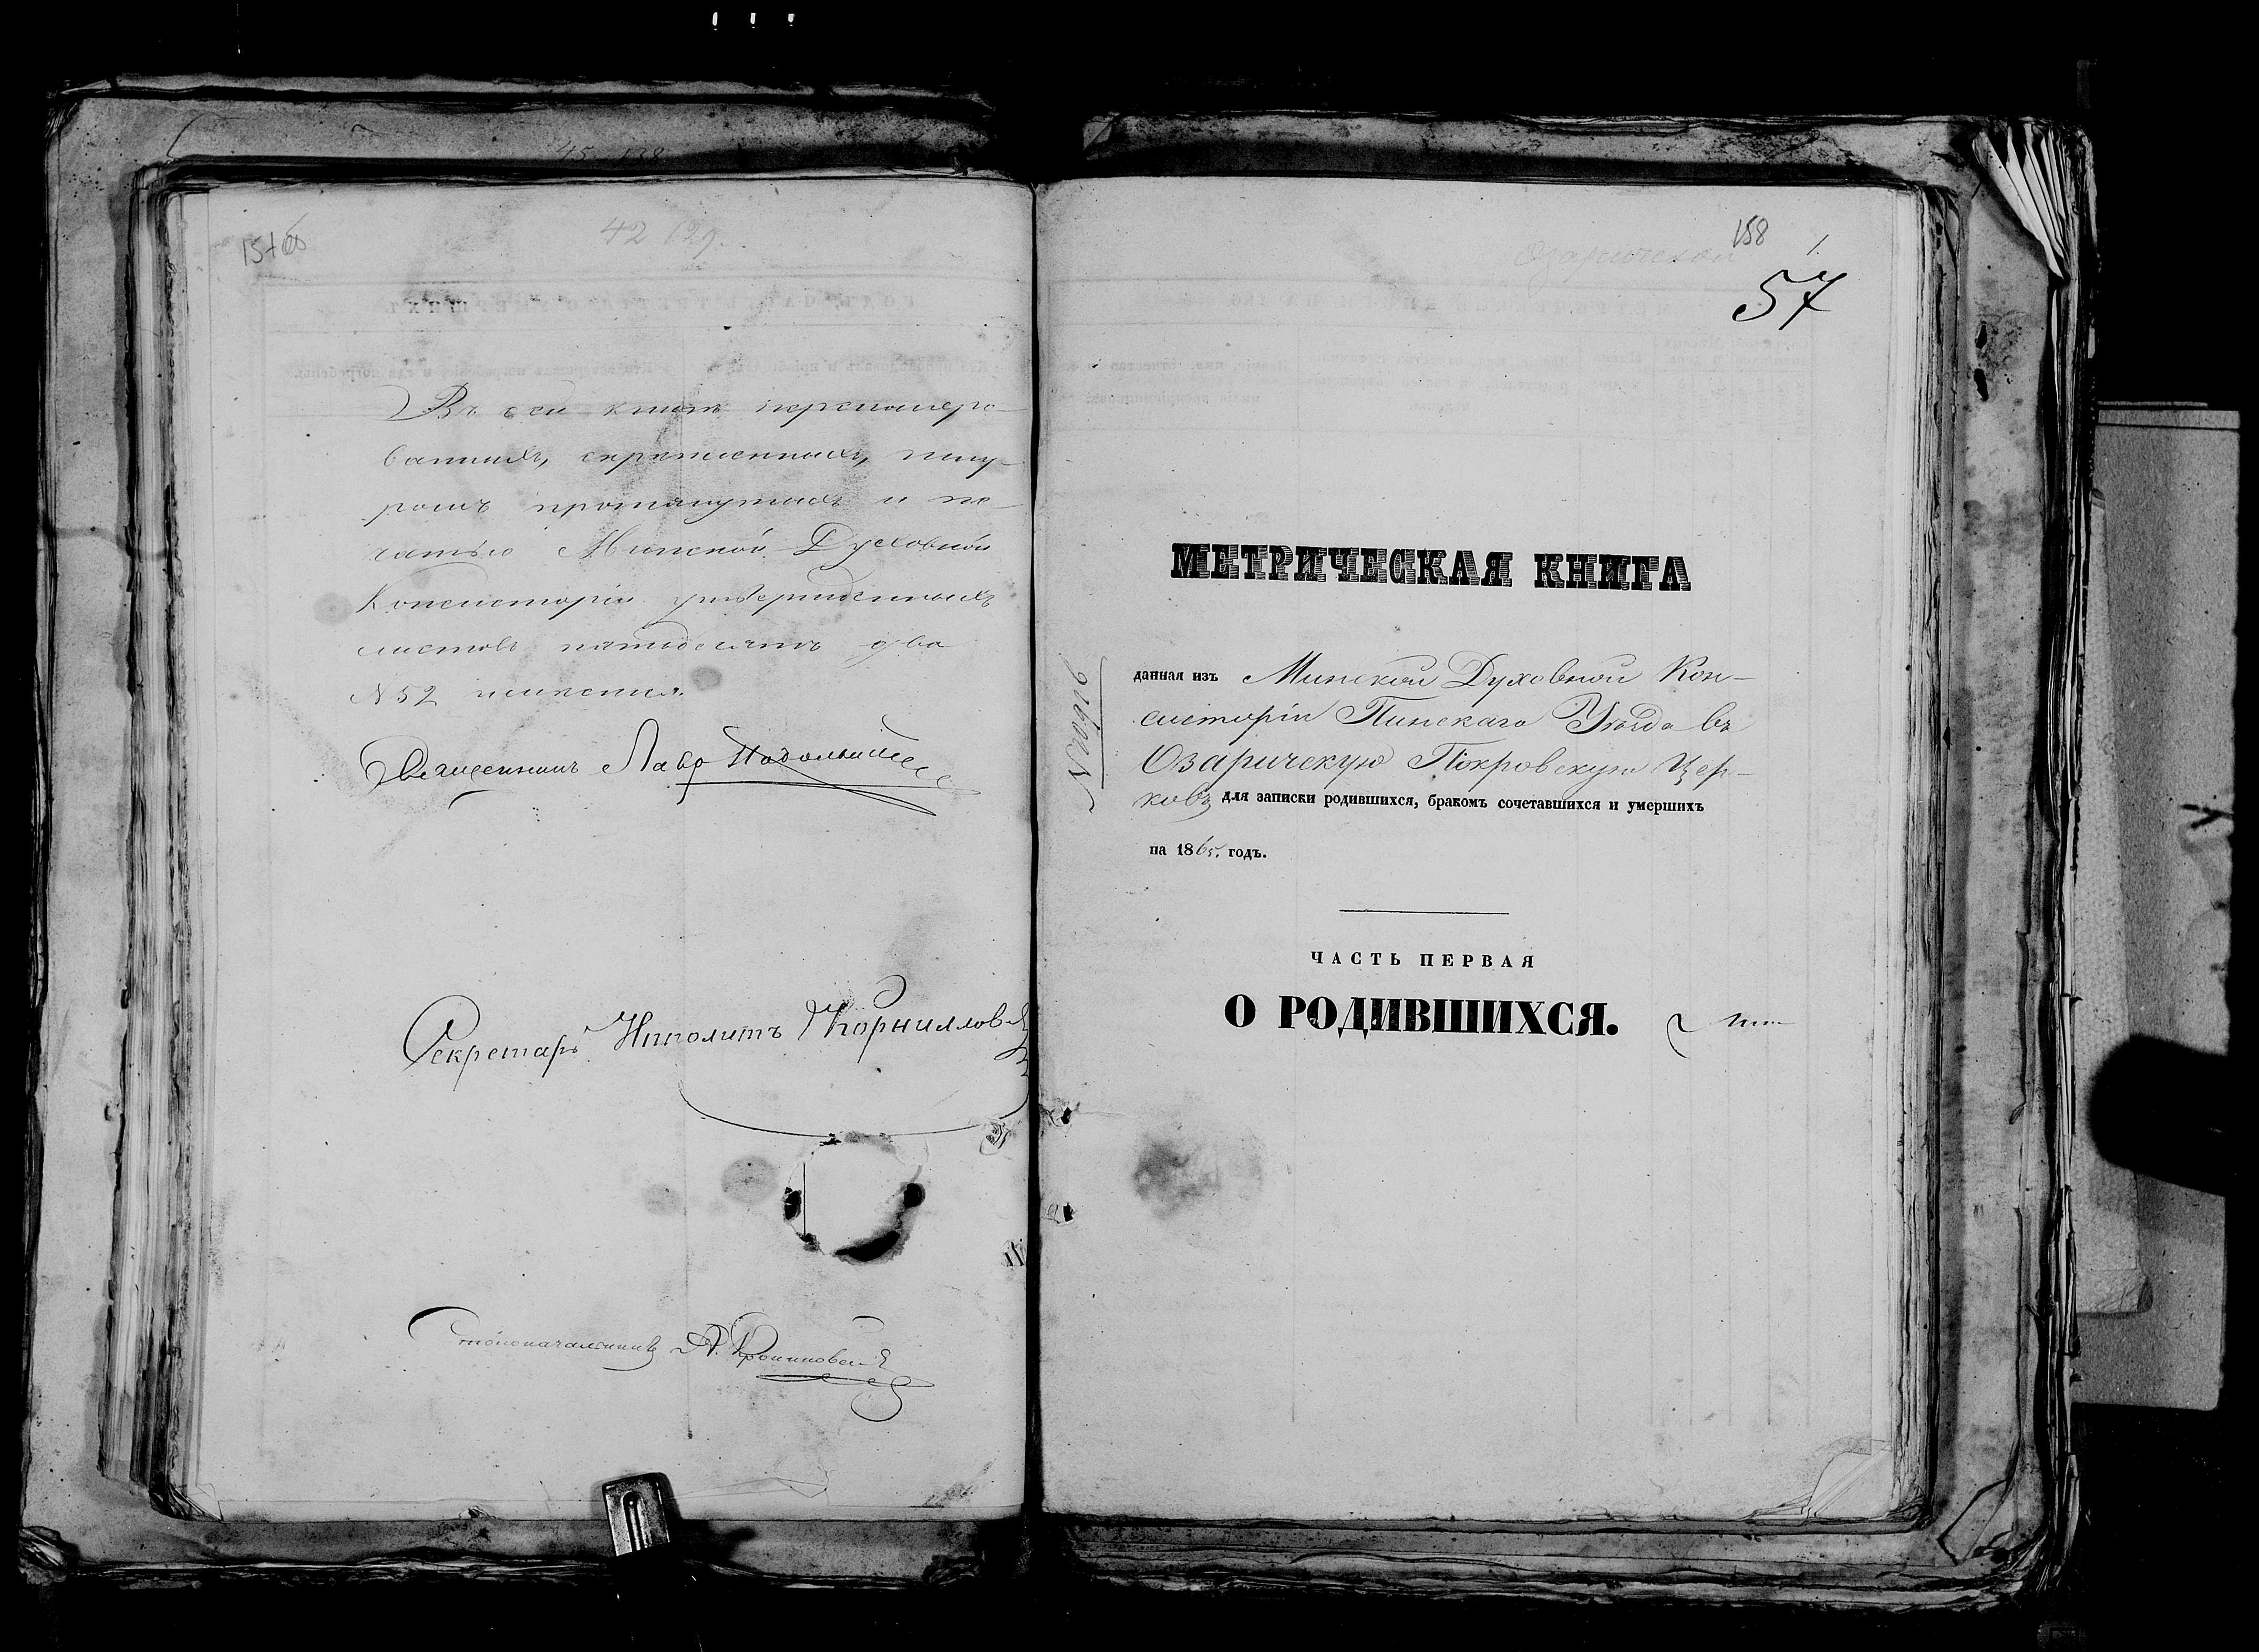 42 129.
Въ сей книгѣ перенумеро-
ванныхъ, скрѣпленныхъ, шну-
ромъ протянутыхъ и пе-
чатью Минской Духовной
Консисторіи утвержденныхъ
листовъ пятьдесятъ два
N 52 
Священникъ Лавр
Секретарь Ипполитъ Корниллов
Столоначальникъ А.
158
1.
Озаричской
57
МЕТРИЧЕСКАЯ КНИГА
данная изъ Минской Духовной Кон-
систоріи Пинскаго Уѣзда въ
Озаричскую Покровскую Цер-
ковь для записки родившихся, бракомъ сочетавшихся и умершихъ
на 1865. годъ.
ЧАСТЬ ПЕРВАЯ
О РОДИВШИХСЯ.